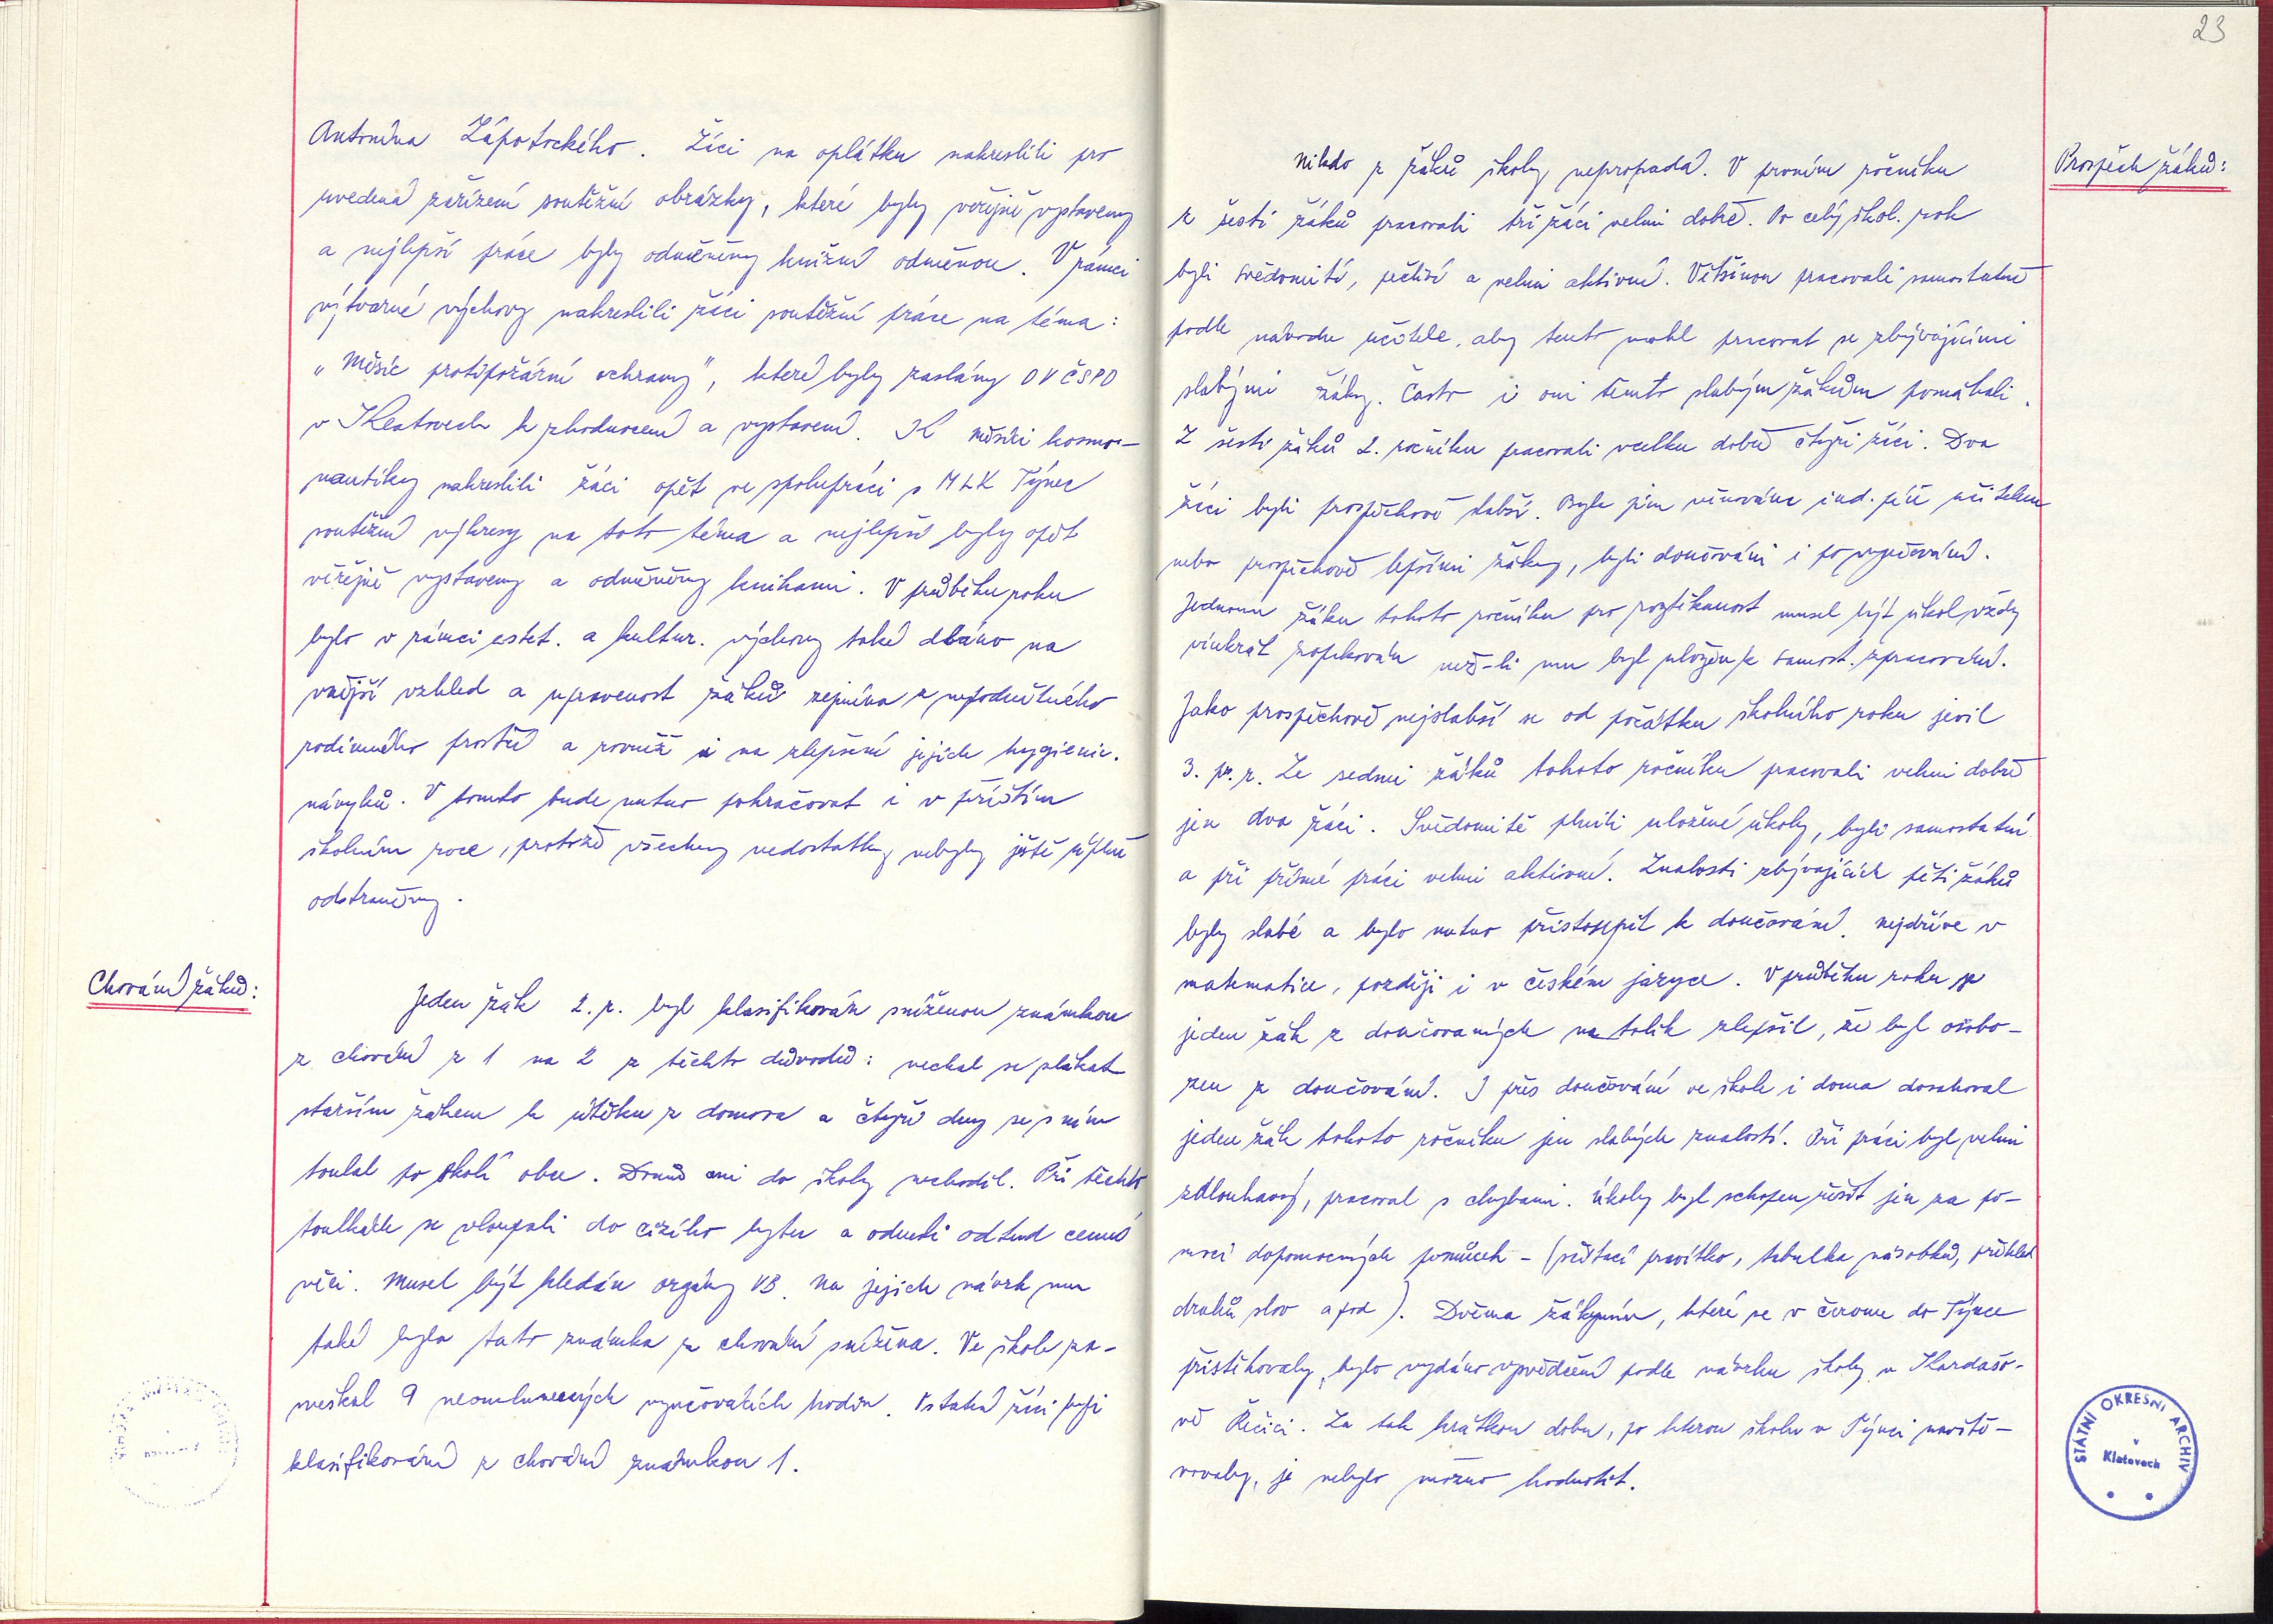 Antonína Zápotockého. Žáci na oplátku nakreslili pro
uvedená zařízení soutěžní obrázky, které byly veřejně vystaveny
a nejlepší práce byly odměněny knižní odměnou. V rámci
výtvarné výchovy nakreslili žáci soutěžní práce na téma:
„Měsíc protipožární ochrany", které byly zaslány OV ČSPO
v Klatovech k zhodnocení a vystavení. K měsíci kosmo-
nautiky nakreslili žáci opět ve spolupráci s MLK Týnec
soutěžní výkresy na toto téma a nejlepší byly opět
veřejně vystaveny a odměněny knihami. V průběhu roku
bylo v rámci estet. a kultur. výchovy také dbáno na
vnější vzhled a upravenost žáků zejména z nepodnětného
rodinného prostř. a rovněž i na zlepšení jejich hygienic.
návyků. V tomto bude nutno pokračovat i v příštím
školním roce, protože všechny nedostatky nebyly ještě úplně
odstraněny.
Chování žáků:
Jeden žák 2. r. byl klasifikován sníženou známkou
z chování z 1 na 2 z těchto důvodů: nechal se zlákat
starším žákem k útěku z domova a čtyři dny se s ním
toulal po okolí obce. Domů ani do školy nechodil. Při těchto
toulkách se vloupali do cizího bytu a odnesli odtud cenné
věci. Musel být hledán orgány VB. Na jejich návrh mu
také byla tato známka z chování snížena. Ve škole za-
meškal 9 neomluvených vyučovacích hodin. Ostatní žáci byli
klasifikováni z chování známkou 1.
23
Prospěch žáků:
Nikdo z žáků školy nepropadá. V prvním ročníku
z šesti žáků pracovali tři žáci velmi dobře. Po celý škol. rok
byli svědomití, pečliví a velmi aktivní. Většinou pracovali samostatně
podle návodu učitele, aby tento mohl pracovat se zbývajícími
slabými žáky. Často i oni těmto slabým žákům pomáhali.
Z šesti žáků 2. ročníku pracovali vcelku dobře čtyři žáci. Dva
žáci byli prospěchově slabší. Byla jim věnována ind. péče učitelem
nebo prospěchově lepšími žáky, byli doučováni i po vyučování.
Jednomu žáku tohoto ročníku pro roztěkanost musel být úkol vždy
víckrát zopakován než-li mu byl uložen k samost. zpracování.
Jako prospěchově nejslabší se od počátku školního roku jevil
3. p. r. Ze sedmi žáků tohoto ročníku pracovali velmi dobře
jen dva žáci. Svědomitě plnili uložené úkoly, byli samostatní
a při přímé práci velmi aktivní. Znalosti zbývajících pěti žáků
byly slabé a bylo nutno přistoupit k doučování. nejdříve v
matematice, později i v českém jazyce. V průběhu roku se
jeden žák z doučovaných natolik zlepšil, že byl osvobo-
zen z doučování. I přes doučování ve škole i doma dosahoval
jeden žák tohoto ročníku jen slabých znalostí. Při práci byl velmi
zdlouhavý, pracoval s chybami. Úkoly byl schopen řešit jen za po-
moci dopomocných pomůcek - (sčítací pravítko, tabulka násobků, přehled
druhů slov a pod). Dvěma žákyním, které se v červnu do Týnce
přistěhovaly, bylo vydáno vysvědčení podle návrhu školy v Kardašo-
vě Řečici. Za tak krátkou dobu, po kterou školu v Týnci navště-
vovaly, je nebylo možno hodnotit.
STÁTNÍ OKRESNÍ ARCHIV
v
Klatovech